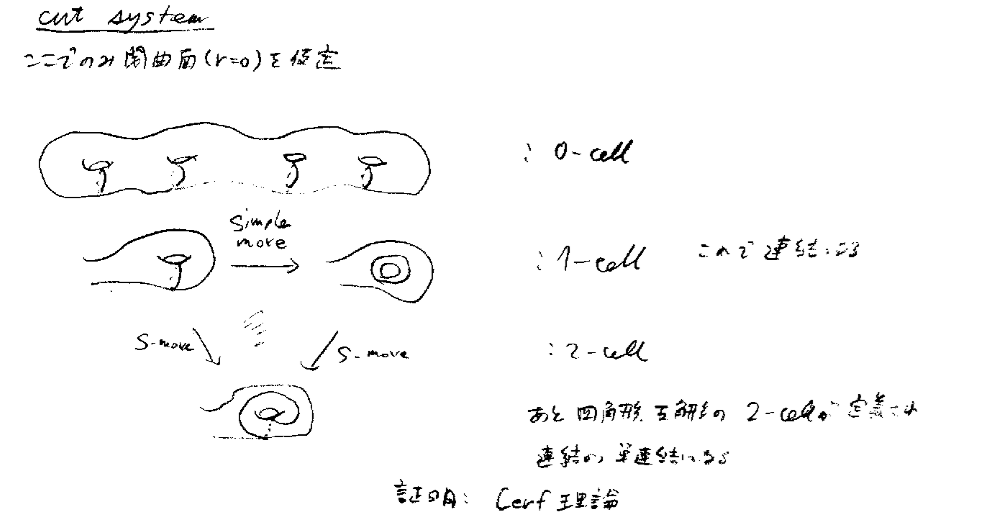 cut system
ここでのみ閉曲面(r=0)を仮定
: 0-cell
simple
move
: 1-cell これで連結になる
S-move
S-move
: 2-cell
あと 四角形, 五角形の 2-cellが定義され
連結かつ単連結になる
証明: Cerf理論